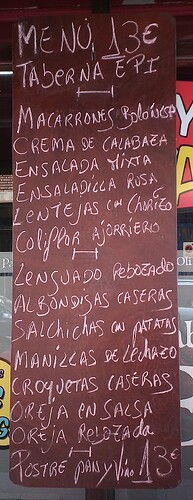 MENÚ 13€
TABERNA EPI
MACARRONES BOLOÑESA
CREMA DE CALABAZA
ENSALADA MIXTA
ENSALADILLA ROSA
LENTEJAS CON CHORIZO
COLIFLOR AJORRIERO
LENGUADO REBOZADO
ALBONDIGAS CASERAS
SALCHICHAS CON PATATAS
MANILLAS DE LECHAZO
CROQUETAS CASERAS
OREJA EN SALSA
OREJA REBOZADA
POSTRE PAN y Vino 13€